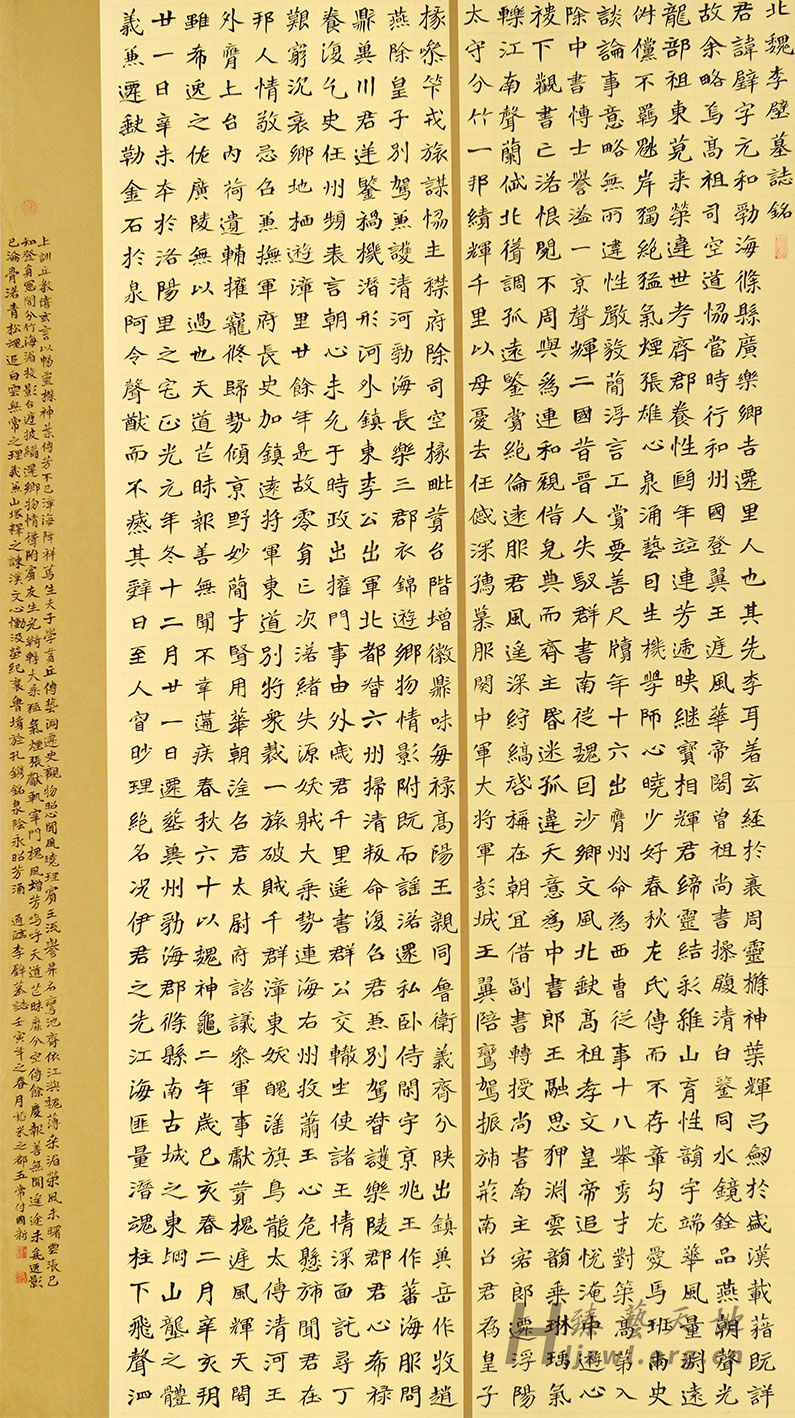 北魏李璧墓誌銘
君諱璧字元和勃海條縣廣樂鄉吉遷里人也其先李耳著玄經於衰周靈櫾神葉輝弓劒於盛漢載藉既詳
故余略焉高祖司空道協當時行和州國登翼王庭風華帝閣曾祖尚書操履清白鑒同水鏡銓品燕朝聲光
龍部祖東莞来榮違世考齊郡養性鷗年竝連芳遞映繼寶相輝君締靈結彩維山育性韻宇端華風量淵遠
倜儻不羈魁岸獨絕猛氣煙張雄心泉涌藝因生機學師心曉少好春秋左氏傳而不存章勾尤愛馬班兩史
談論事意略無所違性嚴毅蕳浮言工賞要善尺牘年十六出膺州命為西曹從事十八舉秀才對策高第入
除中書博士譽溢一京聲輝二國昔晉人失馭群書南徙魏因沙鄉文風北缺高祖孝文皇帝追悦淹中遊心
稷下觀書亡落恨閱不周與為連和規借完典而齊主昏迷孤違天意為中書郎王融思狎淵雲韻乘琳瑀氣
轢江南聲蘭岱北聳調孤遠鑒賞絕倫遠服君風遙深紵縞啓稱在朝宜借副書轉授尚書南主客郎遷浮陽
太守分竹一邦績輝千里以母憂去任慼深孺慕服闋中軍大将軍彭城王翼陪鑾駕振旆荊南召君為皇子
掾參竿戎旅謀協主襟府除司空掾毗贊台階增徽鼎味每祿高陽王親同魯衛義齊分陝出鎮冀岳作牧趙
燕除皇子別駕兼護清河勃海長樂三郡衣錦遊鄉物情影附既而謠落還私卧侍閭宇京兆王作蕃海服問
鼎冀川君逆鑒禍機潛形河外鎮東李公出軍北都督六州掃清叛命復召君兼別駕督護樂陵郡君心希祿
養復乞史任州頻表言朝心未允于時政出權門事由外戚君千里遙書群公交轍生使諸王情深面託尋丁
艱窮沉哀鄉地栖遊漳里廿餘年是故零員亡次落緒失源妖賊大乘勢連海右州牧蕭王心危懸旆聞君在
邦人情敬忌召兼撫軍府長史加鎮遠将軍東道別将衆裁一旅破賊千群漳東妖醜滛旗鳥散太傅清河王
外膺上台內荷遺輔擁寵脩歸勢傾京野妙蕳才賢用華朝塗召君太尉府諮議參軍事獻贊槐庭風輝天閣
雖希逸之佐廣陵無以過也天道芒昧報善無聞不幸遘疾春秋六十以魏神龜二年歲己亥春二月辛亥朔
廿一日辛未卒於洛陽里之宅正光元年冬十二月廿一日遷葬冀州勃海郡條縣南古城之東堈山壟之體
義兼遷缺勒金石於泉阿令聲猷而不癈其辭曰至人窅眇理絕名况伊君之先江海匪量潛魂柱下飛聲泗
上訓丘教傳玄言以暢靈櫾神葉傳芳不已漳海降祥篤生夫子學貫丘傳藝洞遷史觀物昭心聞風曉理賓王流譽昇名鸞池齊依江淏魏薄桒湄榮風未曙雲張已
知登員忝閣分竹海湄投影台庭披縞還鄉物情聳附賓友生光轔轉大乘猛氣煙張獻軌宰門槐風增芳嗚呼天道芒昧靡分空傳餘慶報善無聞遥途未窮迅影
已淪骨落青松魂追白雲無常之理義兼山塚釋之諫漢文心慟汲塟紀襄魯墳於孔鐫銘泉陰永昭芳涌 通臨李璧墓誌壬寅年之春月稻米之都五常付國新
臻藝天地
Hljxwl.arc.cn